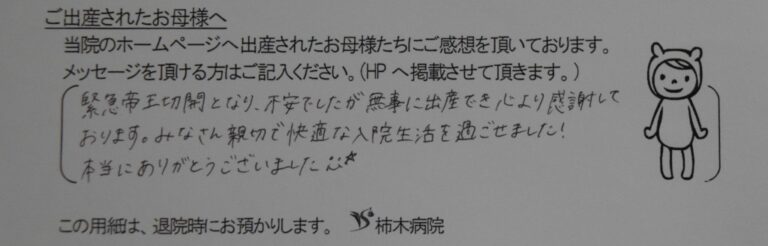 ご出産されたお母様へ
当院のホームページへ出産されたお母様たちにご感想を頂いております。
メッセージを頂ける方はご記入ください。(HPへ掲載させて頂きます。)
緊急帝王切開となり、不安でしたが無事に出産でき心より感謝して
おります。みなさん親切で快適な入院生活を過ごせました!
本当にありがとうございました
この用細は、退院時にお預かりします。 柿木病院